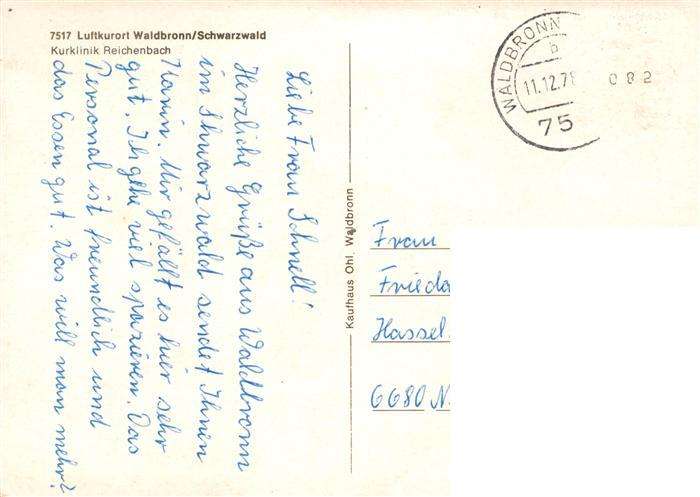 7517 Luftkurort Waldbronn/Schwarzwald
Kurklinik Reichenbach
Liebe Frau Schnell!
Herzliche Grüße aus Waldbronn
im Schwarzwald sendet Ihnen
Karin. Mir gefällt es hier sehr
gut. Ich gehe viel spazieren. Das
Personal ist freundlich und
das Essen gut. Was will man mehr?
Kaufhaus Ohl, Waldbronn
WALDBRONN
b
11.12.78
082
75
Frau
Frieda
Hassel
6680 N